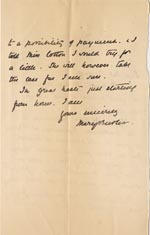 to a possibility of payment. I
told Miss Cotton I would try for
a little. She will however take
the case for I am sure.
In great haste just starting
from home. I am
Yours sincerely